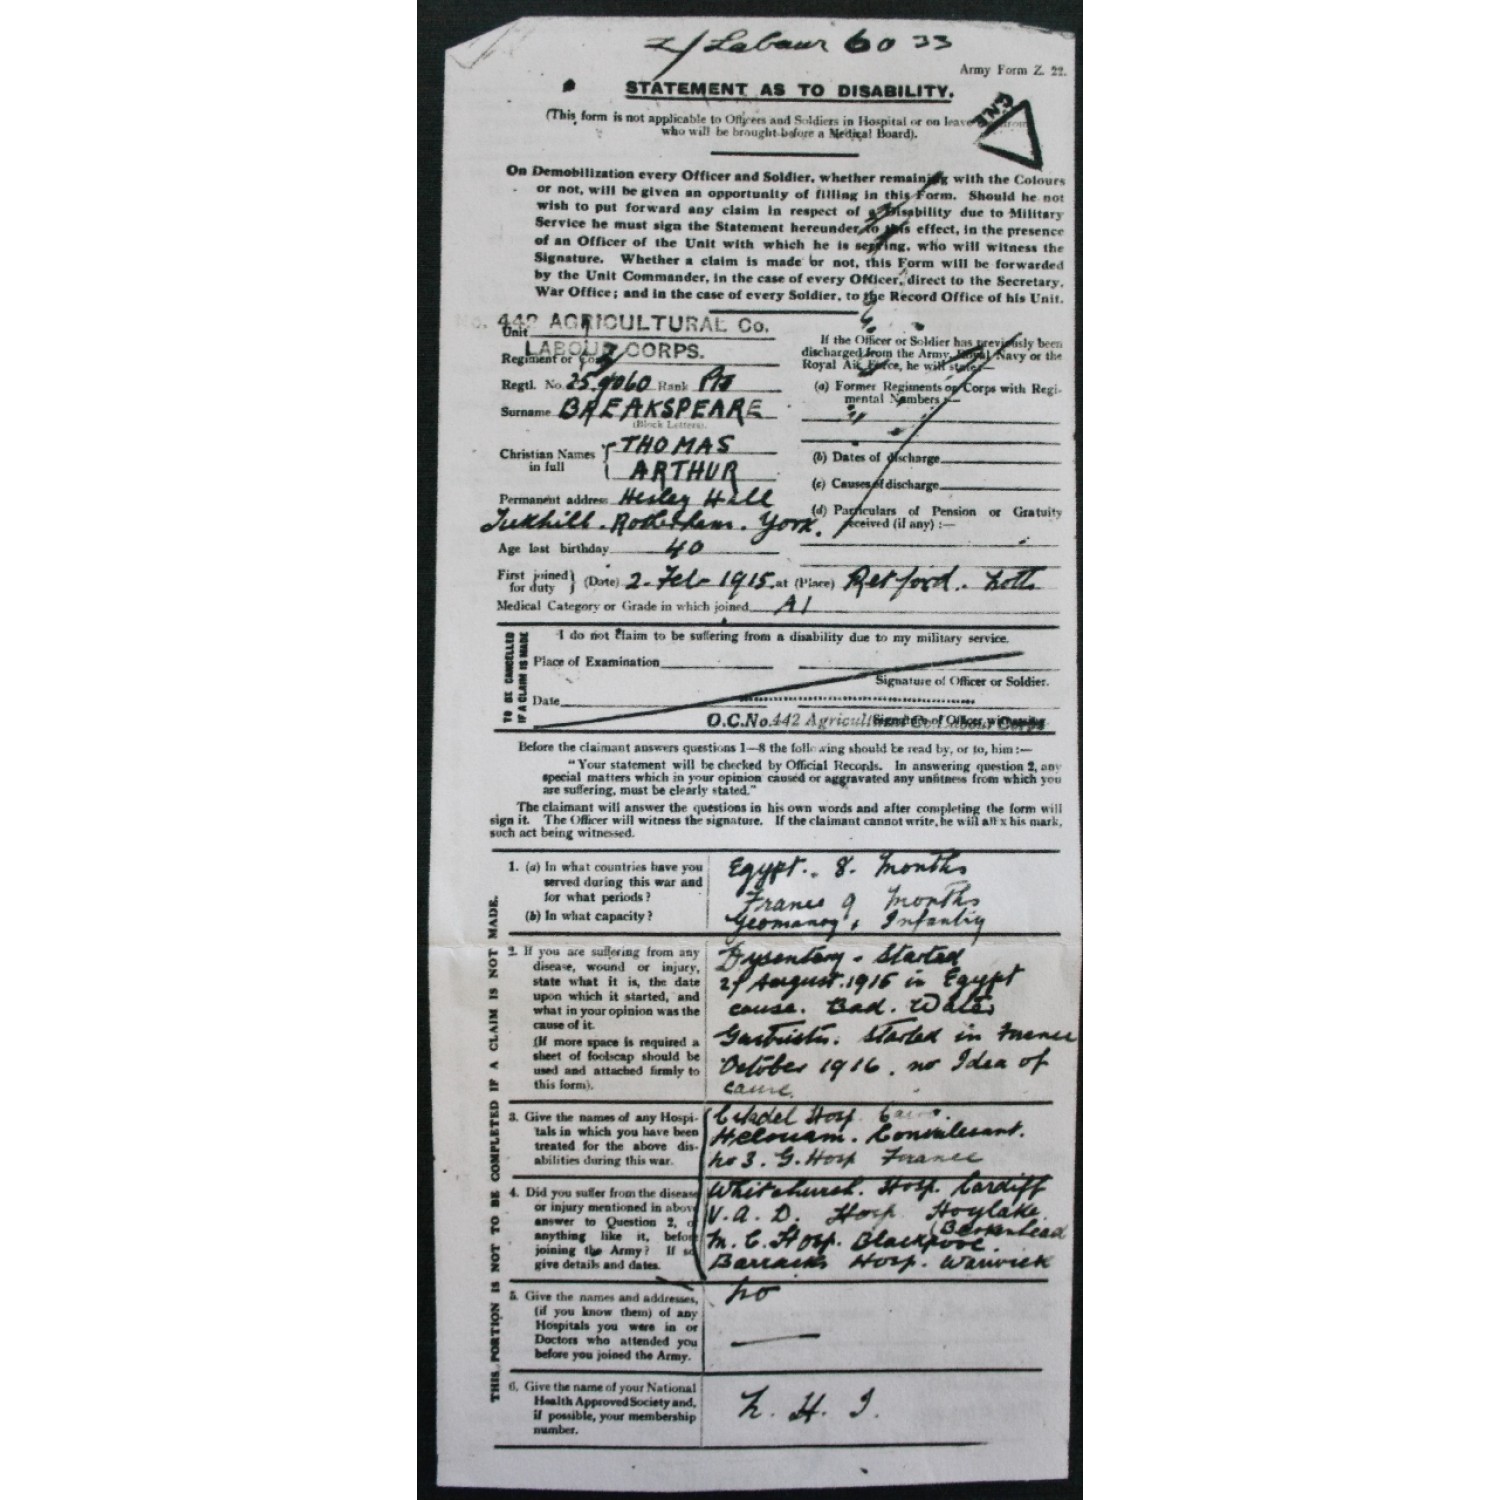 Z/ Labour 60 33
Army Form Z. 22.
STATEMENT AS TO DISABILITY.
(This form is not applicable to Officers and Soldiers in Hospital or on leave from
who will be brought before a Medical Board).
GNE
On Demobilization every Officer and Soldier, whether remaining with the Colours
or not, will be given an opportunity of filling in this Form. Should he not
wish to put forward any claim in respect of a Disability due to Military
Service he must sign the Statement hereunder to this effect, in the presence
of an Officer of the Unit with which he is serving, who will witness the
Signature. Whether a claim is made or not, this Form will be forwarded
by the Unit Commander, in the case of every Officer, direct to the Secretary,
War Office; and in the case of every Soldier, to the Record Office of his Unit.
No. 442 AGRICULTURAL Co.
Unit
LABOUR CORPS.
Regiment or Corps
Regtl. No. 259060 Rank Pte
Surname BREAKSPEARE
(Block Letters).
Christian Names in full THOMAS
ARTHUR
Permanent address Hesley Hall
Tickhill. Rotherham. York.
Age last birthday 40
If the Officer or Soldier has previously been
discharged from the Army, Royal Navy or the
Royal Air Force, he will state:—
(a) Former Regiments or Corps with Regi-
mental Numbers :—
(b) Dates of discharge
(c) Causes of discharge
(d) Particulars of Pension or Gratuity
received (if any) :—
First joined for duty (Date) 2. Feb 1915. at (Place) Retford. Notts
Medical Category or Grade in which joined A1
TO BE CANCELLED
IF A CLAIM IS MADE
I do not claim to be suffering from a disability due to my military service.
Place of Examination
Signature of Officer or Soldier.
Date
O.C.No. 442 Agricultural Co. Labour Corps
Signature of Officer witnessing
Before the claimant answers questions 1—8 the following should be read by, or to, him :—
"Your statement will be checked by Official Records. In answering question 2, any
special matters which in your opinion caused or aggravated any unfitness from which you
are suffering, must be clearly stated."
The claimant will answer the questions in his own words and after completing the form will
sign it. The Officer will witness the signature. If the claimant cannot write, he will affix his mark,
such act being witnessed.
THIS PORTION IS NOT TO BE COMPLETED IF A CLAIM IS NOT MADE.
1. (a) In what countries have you
served during this war and
for what periods?
(b) In what capacity?
Egypt. 8. Months
France 9 Months
Yeomanry & Infantry
2. If you are suffering from any
disease, wound or injury,
state what it is, the date
upon which it started, and
what in your opinion was the
cause of it.
(If more space is required a
sheet of foolscap should be
used and attached firmly to
this form).
Dysentery - Started
August. 1915 in Egypt
cause. Bad. Water
Gastritis. Started in France
October 1916. no Idea of
cause.
3. Give the names of any Hospi-
tals in which you have been
treated for the above dis-
abilities during this war.
Citadel Hosp Cairo.
Helouan. Convalescent.
No 3. G. Hosp France
4. Did you suffer from the disease
or injury mentioned in above
answer to Question 2, or
anything like it, before
joining the Army? If so
give details and dates.
Whitchurch. Hosp. Cardiff
V. A. D. Hosp Hoylake
(Berkenhead
M. C. Hosp. Blackpool.
Barracks Hosp. Warwick
5. Give the names and addresses,
(if you know them) of any
Hospitals you were in or
Doctors who attended you
before you joined the Army.
No
6. Give the name of your National
Health Approved Society and,
if possible, your membership
number.
N. H. I.